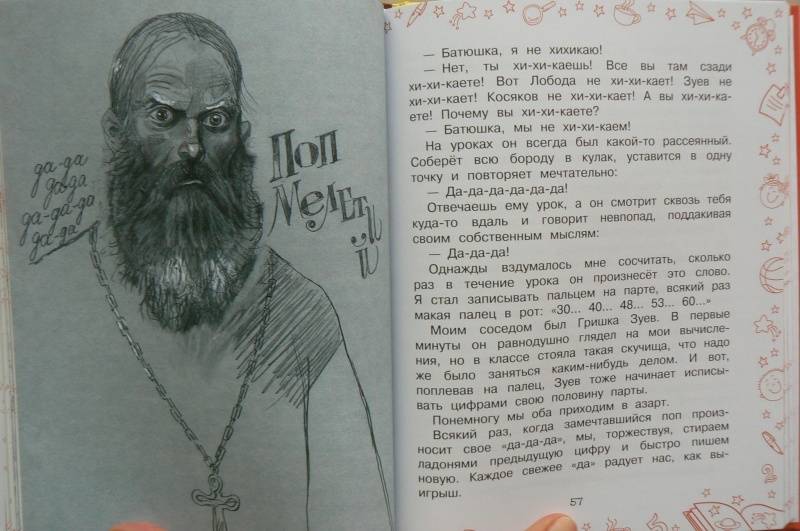 да-да
да-да
да-да-да
да-да
Поп
Мелетий
— Батюшка, я не хихикаю!
— Нет, ты хи-хи-каешь! Все вы там сзади
хи-хи-каете! Вот Лобода не хи-хи-кает! Зуев не
хи-хи-кает! Косяков не хи-хи-кает! А вы хи-хи-ка-
ете! Почему вы хи-хи-каете?
— Батюшка, мы не хи-хи-каем!
На уроках он всегда был какой-то рассеянный.
Соберёт всю бороду в кулак, уставится в одну
точку и повторяет мечтательно:
— Да-да-да-да-да-да!
Отвечаешь ему урок, а он смотрит сквозь тебя
куда-то вдаль и говорит невпопад, поддакивая
своим собственным мыслям:
— Да-да-да!
Однажды вздумалось мне сосчитать, сколько
раз в течение урока он произнесёт это слово.
Я стал записывать пальцем на парте, всякий раз
макая палец в рот: «30... 40... 48... 53... 60...»
Моим соседом был Гришка Зуев. В первые
минуты он равнодушно глядел на мои вычисле-
ния, но в классе стояла такая скучища, что надо
же было заняться каким-нибудь делом. И вот,
поплевав на палец, Зуев тоже начинает исписы-
вать цифрами свою половину парты.
Понемногу мы оба приходим в азарт.
Всякий раз, когда замечтавшийся поп произ-
носит свое «да-да-да», мы, торжествуя, стираем
ладонями предыдущую цифру и быстро пишем
новую. Каждое свежее «да» радует нас, как вы-
игрыш.
57